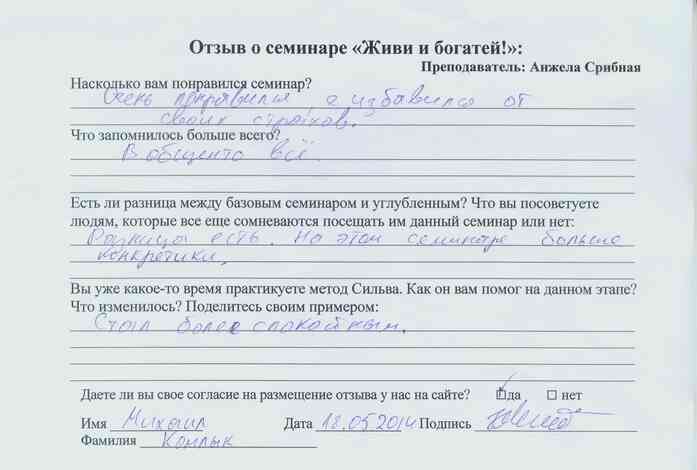 Отзыв о семинаре «Живи и богатей!»:
Преподаватель: Анжела Срибная
Насколько вам понравился семинар?
Очень понравился, я избавился от
своих страхов.
Что запомнилось больше всего?
В общемто всё.
Есть ли разница между базовым семинаром и углубленным? Что вы посоветуете
людям, которые все еще сомневаются посещать им данный семинар или нет:
Разница есть. На этом семинаре больше
конкретики.
Вы уже какое-то время практикуете метод Сильва. Как он вам помог на данном этапе?
Что изменилось? Поделитесь своим примером:
Стал более спокойным.
Даете ли вы свое согласие на размещение отзыва у нас на сайте? да нет
Имя Михаил Дата 18.05.2014 Подпись
Фамилия